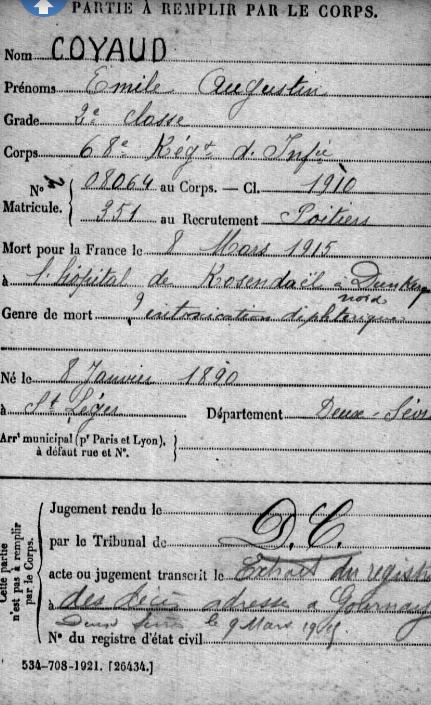 PARTIE À REMPLIR PAR LE CORPS.
Nom COYAUD
Prénoms Emile Augustin
Grade 2e classe
Corps 68e Régt d. Infie
Nos Matricule. { 08064 au Corps. — Cl. 1910
351 au Recrutement Poitiers
Mort pour la France le 8 Mars 1915
à l'hôpital de Rosendaël à Dunkerq
nord
Genre de mort intoxication diphtérique
Né le 8 Janvier 1890
à St Léger Département Deux-Sèvr
Arrt municipal (pr Paris et Lyon), }
à défaut rue et N°.
Cette partie n'est pas à remplir par le Corps.
Jugement rendu le
par le Tribunal de D. C.
acte ou jugement transcrit le Extrait du registr
à des décès adressé à Gournay
Deux Sèvres le 9 Mars 1915
N° du registre d'état civil
534-708-1921. [26434.]